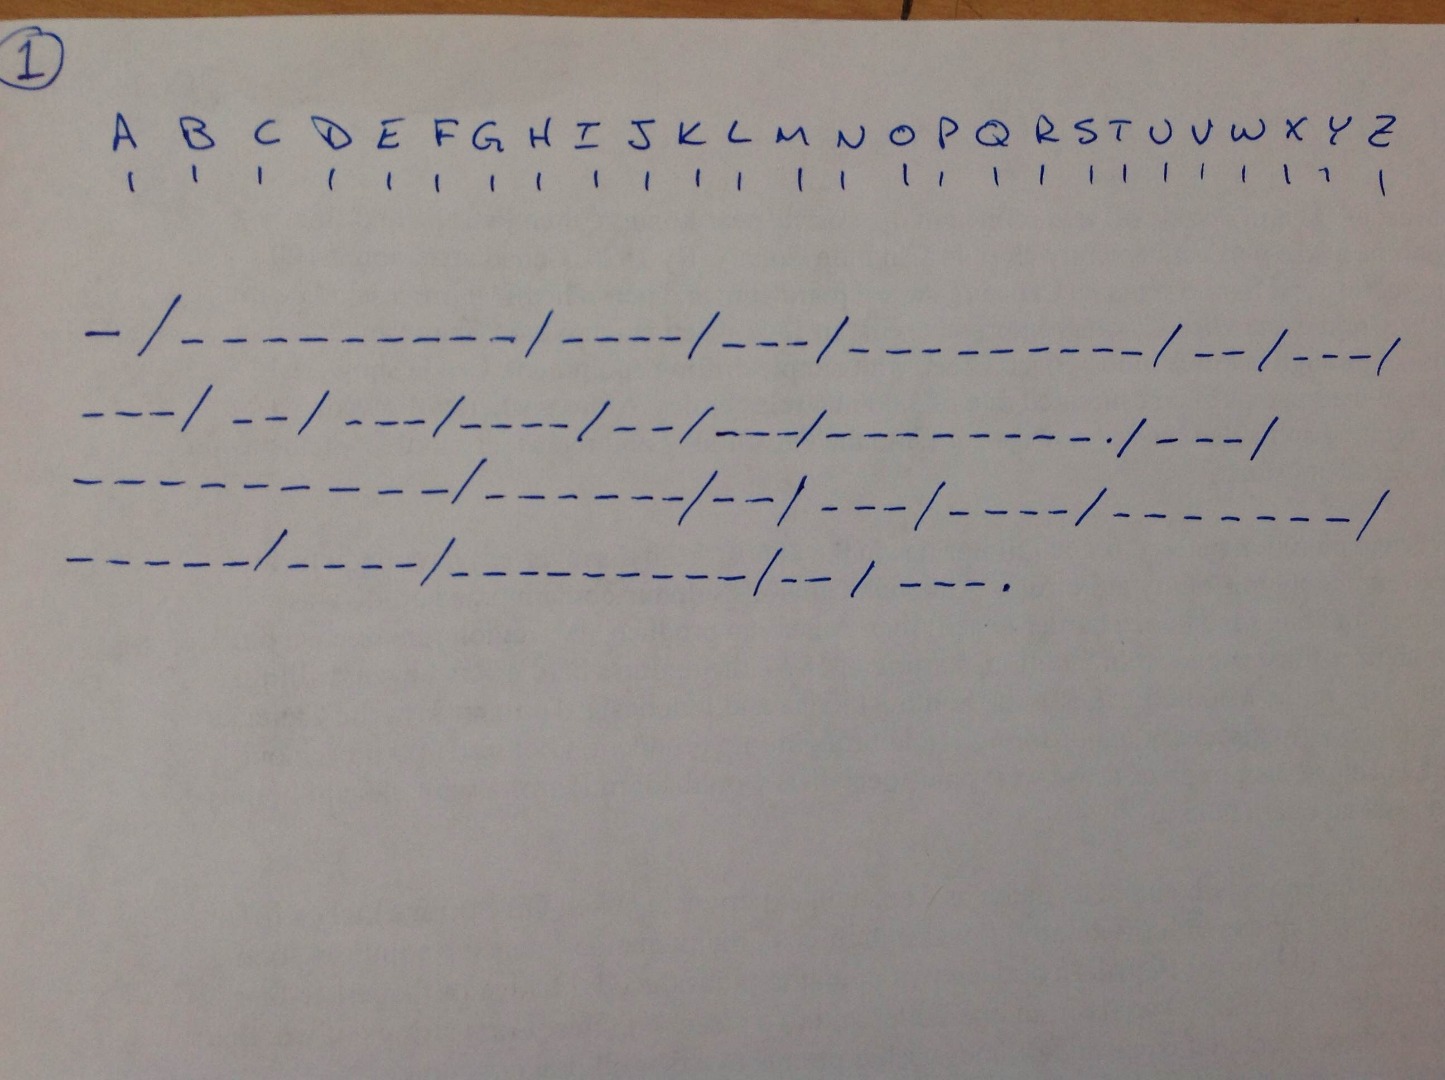 1
A B C D E F G H I J K L M N O P Q R S T U V W X Y Z
| | | | | | | | | | | | | | | | | | | | | | | | | |
- / - - - - - - - - - - / - - - - / - - - / - - - - - - - - - / - - / - - - /
- - - / - - / - - - / - - - - / - - / - - - / - - - - - - - - - . / - - - /
- - - - - - - - - / - - - - - - / - - / - - - / - - - - / - - - - - - - /
- - - - - / - - - - / - - - - - - - - - / - - / - - - .